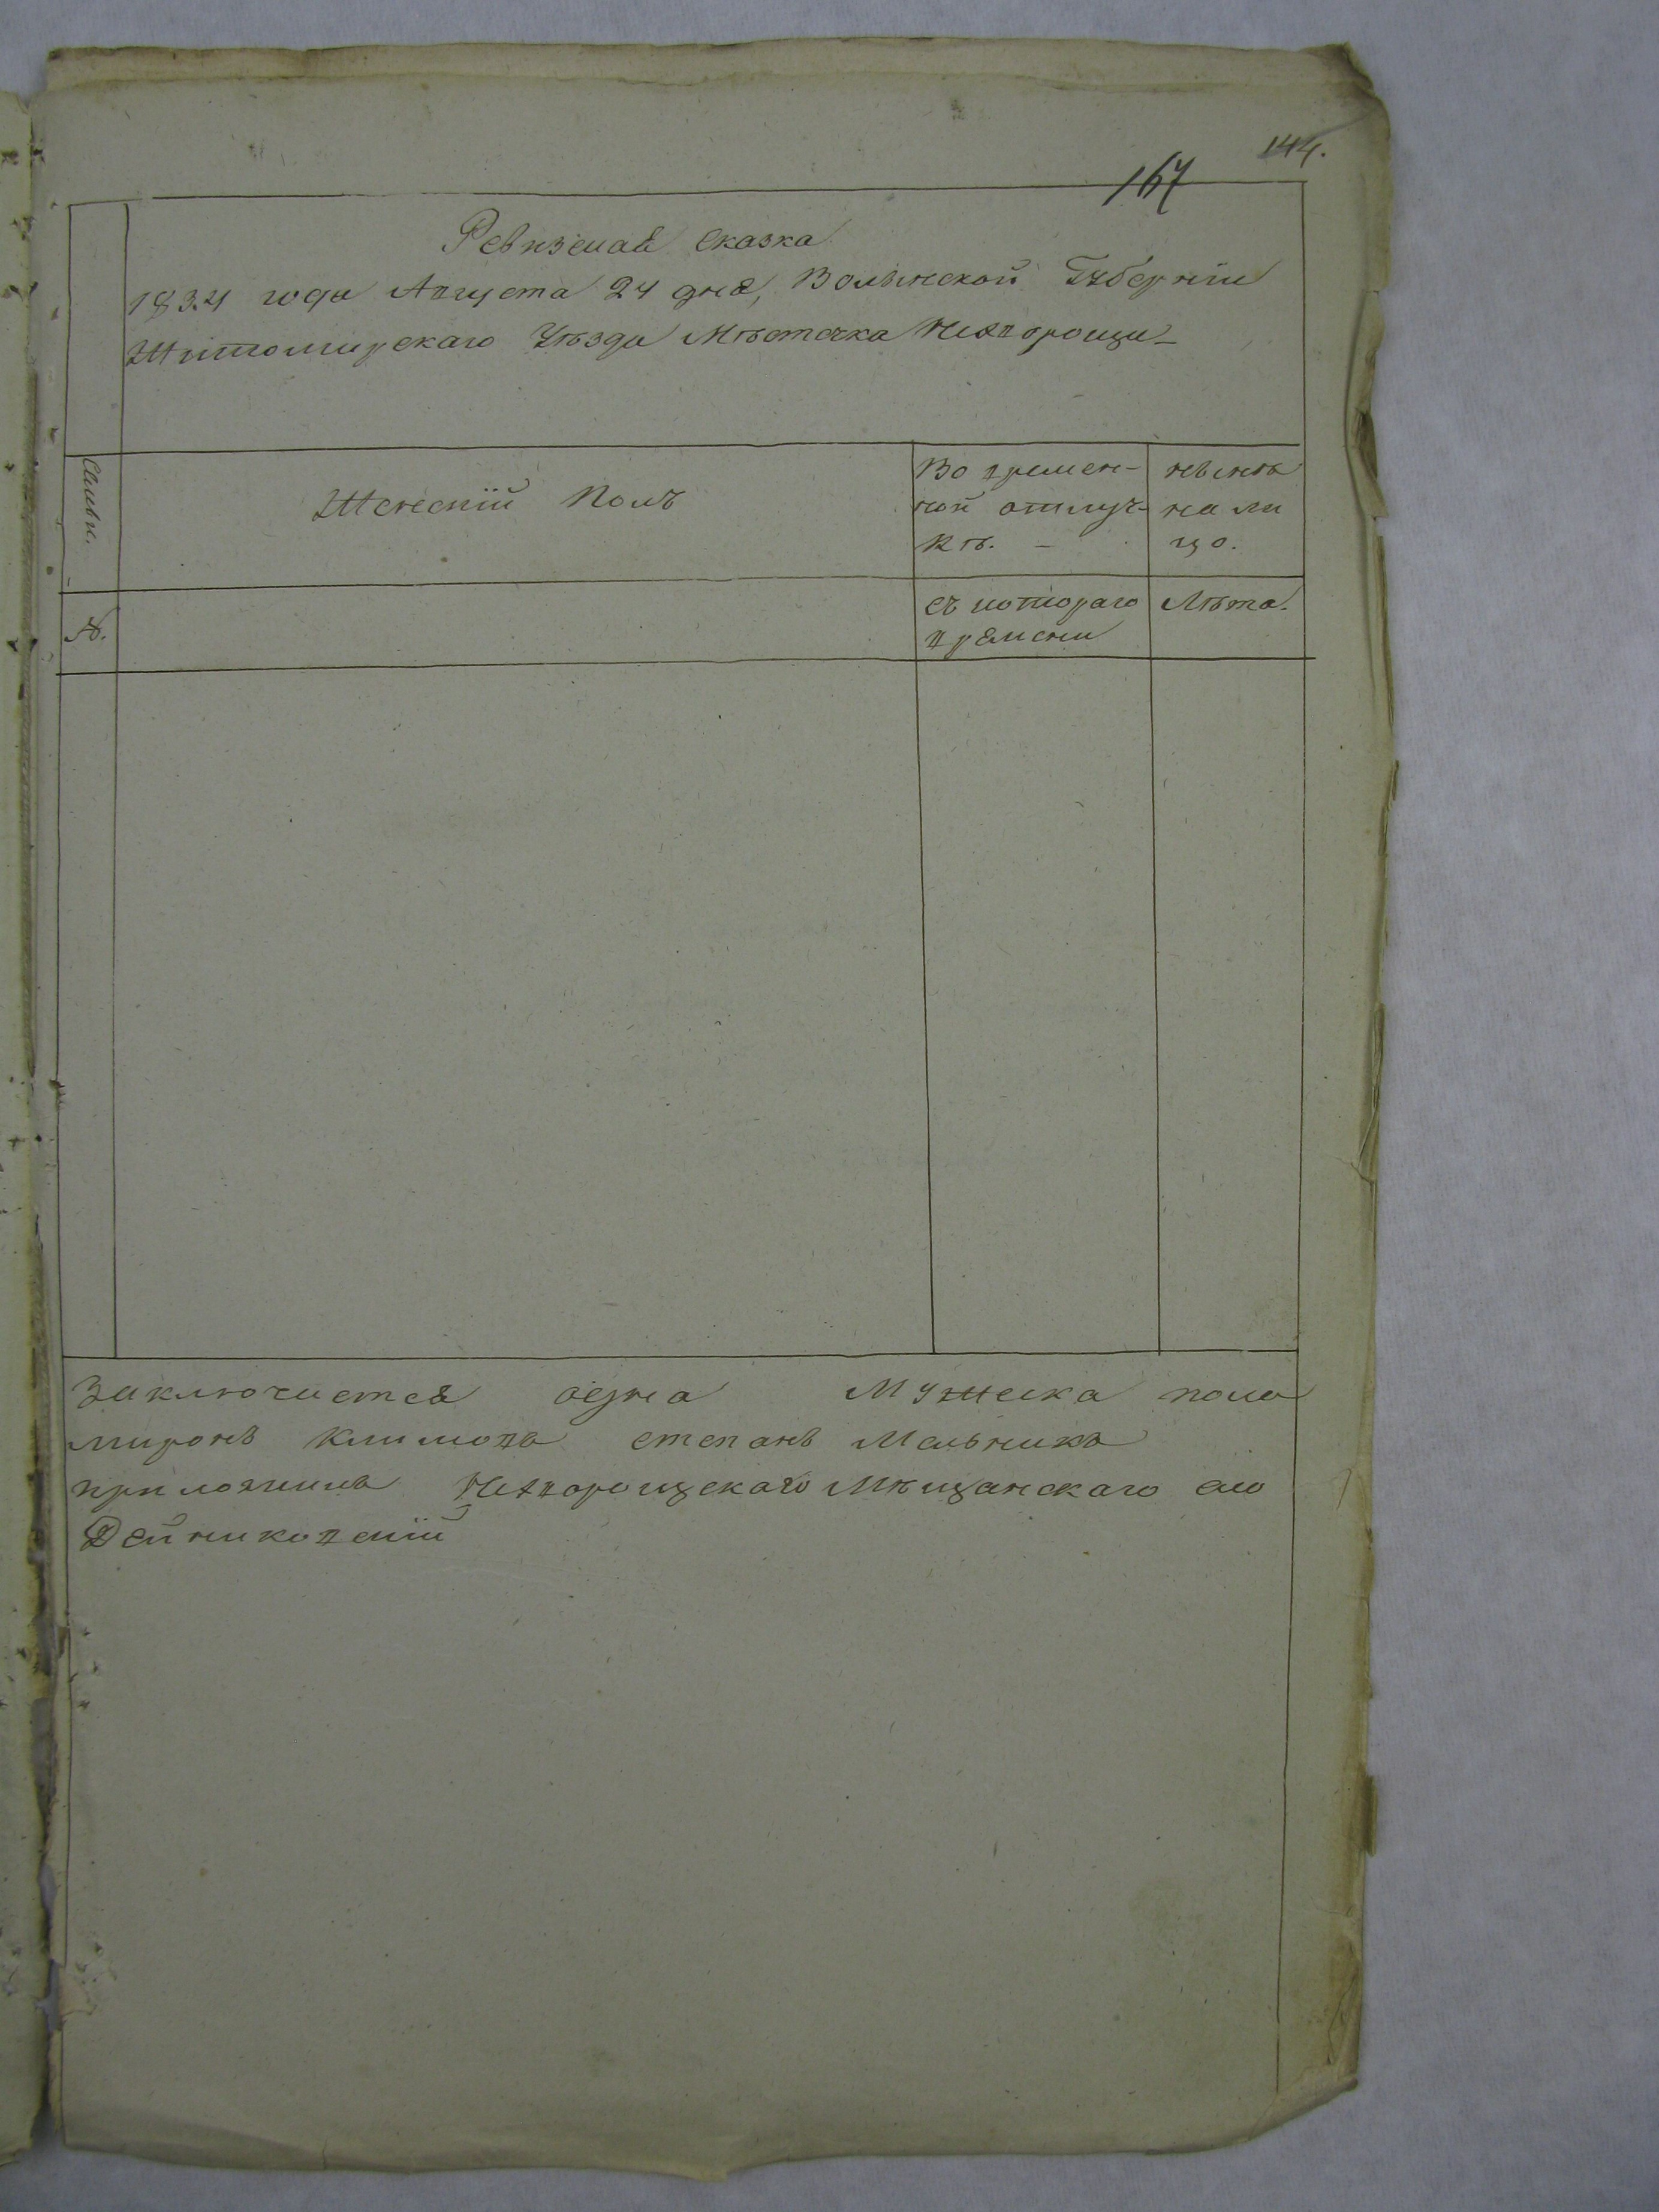 144.
167
Ревизская Сказка
1834 года Августа 24 дня, Волынской Губерніи
Житомирскаго Уѣзда Мѣстечка Нехворощи
Семьи.
Женскій Полъ
Во времен-
ной отлуч-
кѣ. —
нынѣ
на ли
цо.
№.
съ котораго
времени
Лѣта.
Заключается одна Мужеска пола
миронъ климовъ степанъ Мельникъ
приложилъ Нехворощскаго Мѣщанскаго
Дейниковскій